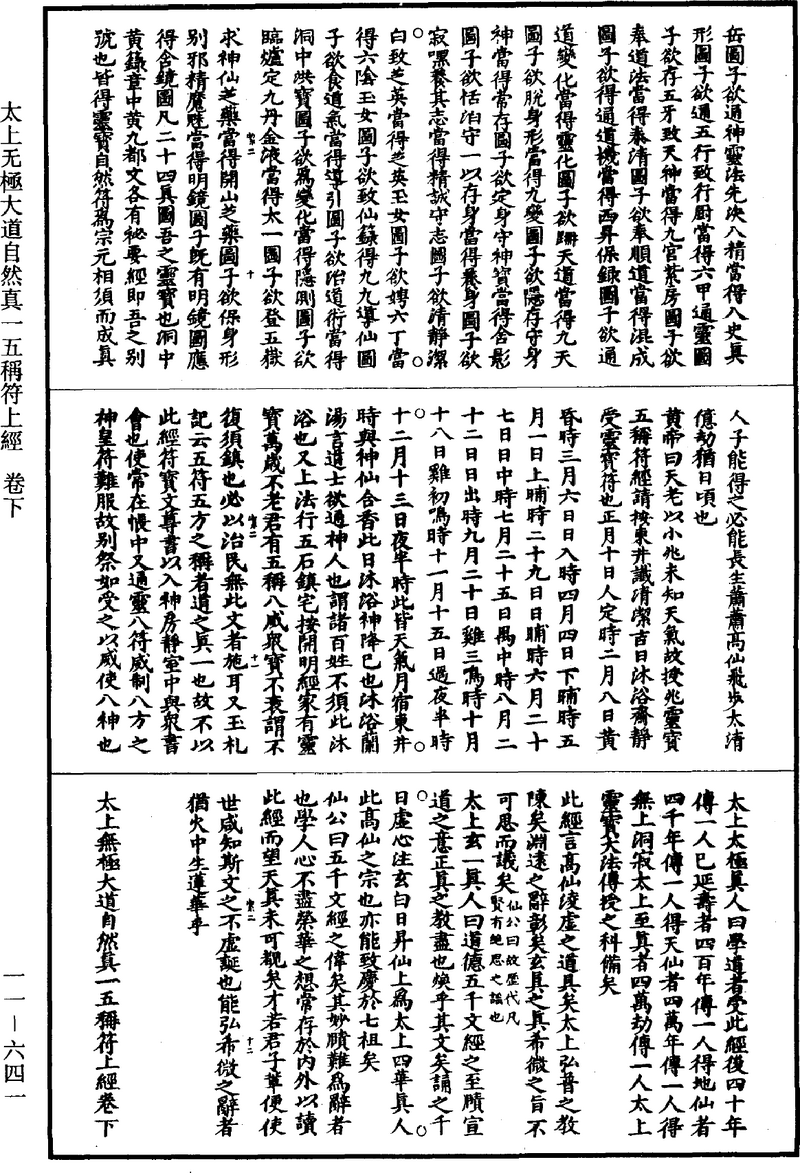 岳圖子欲通神靈法先決八精當得八史真
形圖子欲通五行致行廚當得六甲通靈圖
子欲存五牙致天神當得九宮紫房圖子欲
奉道法當得奉清圖子欲奉順道當得混成
圖子欲得通道機當得西昇保錄圖子欲通
道變化當得靈化圖子欲躡天道當得九天
圖子欲脫身形當得九變圖子欲隱存守身
神當得常存圖子欲定身守神寶當得舍影
圖子欲恬泊守一以存身當得養身圖子欲
寂嘿養其志當得精誠守志圖子欲清靜潔
白致芝英當得芝英玉女圖子欲娉六丁當
得六陰玉女圖子欲致仙籙得九九導仙圖
子欲食道氣當得導引圖子欲治道術當得
洞中洪寶圖子欲為變化當得隱測圖子欲
臨爐定九丹金液當得太一圖子欲登五嶽
求神仙芝藥當得開山芝藥圖子欲保身形
別邪精魔魅當得明鏡圖子既有明鏡圖應
得含鏡圖凡二十四真圖吾之靈寶也洞中
黃籙章中黃九都文各有祕要經即吾之別
號也皆得靈寶自然符為宗元相須而成真
人子能得之必能長生蕭蕭高仙飛步太清
億劫猶日頃也
黃帝曰天老以小兆未知天氣故授兆靈寶
五稱符經請按東井讖清潔吉日沐浴齋靜
受靈寶符也正月十日人定時二月八日黃
昏時三月六日日入時四月四日下晡時五
月一日上晡時二十九日日晡時六月二十
七日日中時七月二十五日禺中時八月二
十二日日出時九月二十日雞三鳴時十月
十八日雞初鳴時十一月十五日過夜半時
十二月十三日夜半時此皆天氣月宿東井
時與神仙合香此日沐浴神降己也沐浴蘭
湯言道士欲通神人也謂諸百姓不須此沐
浴也又上法行五石鎮宅按開明經家有靈
寶萬歲不老君有五稱八威眾寶不衰謂不
復須鎮也必以治民無此文者施耳又玉札
記云五符五方之稱者道之真一也故不以
此經符寶文尊書以入神房靜室中與眾書
會也使常在悵中又通靈八符威制八方之
神皇符難服故別祭如受之以威使八神也
太上太極真人曰學道者受此經後四十年
傳一人已延壽者四百年傳一人得地仙者
四千年傳一人得天仙者四萬年傳一人得
無上洞寂太上至真者四萬劫傳一人太上
靈寶大法傳授之科備矣
此經言高仙淩虛之道具矣太上弘普之教
陳矣淵遠之辭彰矣玄真之真希微之旨不
可思而議矣仙公曰故歷代凡賢有絕思之談也
太上玄一真人曰道德五千文經之至賾宣
道之意正真之教盡也煥乎其文矣誦之千
日虛心注玄白日昇仙上為太上四華真人
此高仙之宗也亦能致慶於七祖矣
仙公曰五千文經之偉矣其妙賾難為辭者
也學人心不盡榮華之想常存於內外以讀
此經而望天真未可覩矣才若君子輩便使
世咸知斯文之不虛誕也能弘希微之辭者
猶火中生蓮華乎
太上無極大道自然真一五稱符上經卷下
太上无極大道自然真一五稱符上經 卷下
一一—六四一